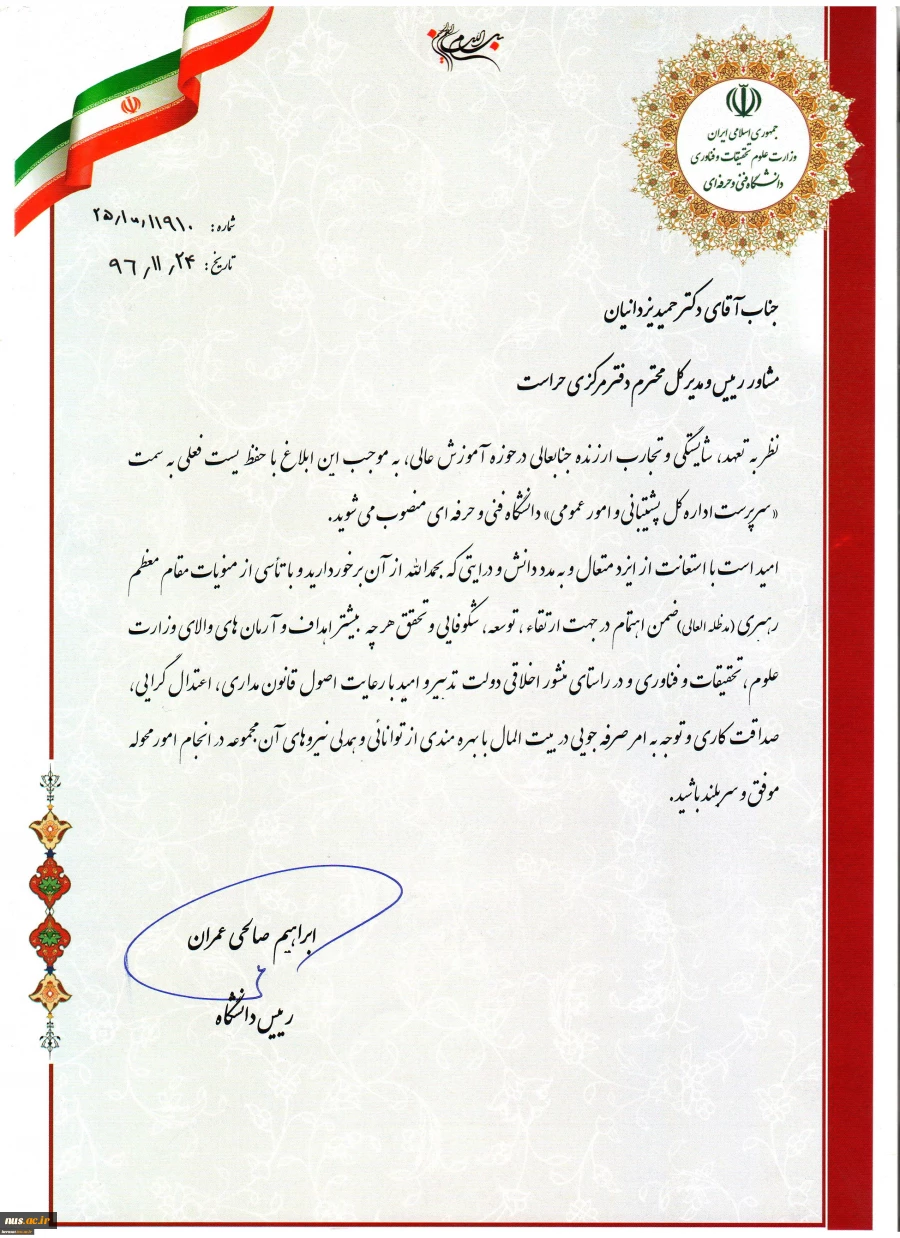 بسم الله الرحمن الرحیم
جمهوری اسلامی ایران
وزارت علوم تحقیقات و فناوری
دانشگاه فنی و حرفه ای
شماره:
تاریخ: ۹۶٫۱۱٫۲۴
جناب آقای دکتر حمید یزدانیان
مشاور رییس و مدیر کل محترم دفتر مرکزی حراست
نظر به تعهد، شایستگی و تجارب ارزنده جنابعالی در حوزه آموزش عالی، به موجب این ابلاغ با حفظ پست فعلی به سمت
«سرپرست اداره کل پشتیبانی و امور عمومی» دانشگاه فنی و حرفه ای منصوب می شوید.
امید است با استعانت از ایزد متعال و به مدد دانش و درایتی که بحمدالله از آن برخوردارید و با تأسی از منویات مقام معظم
رهبری (مدظله العالی) ضمن اهتمام در جهت ارتقاء، توسعه، شکوفایی و تحقق هر چه بیشتر اهداف و آرمان های والای وزارت
علوم، تحقیقات و فناوری و در راستای منشور اخلاقی دولت تدبیر و امید با رعایت اصول قانون مداری، اعتدال گرایی،
صداقت کاری و توجه به امر صرفه جویی در بیت المال با بهره مندی از توانائی و همدلی نیروهای آن مجموعه در انجام امور محوله
موفق و سربلند باشید.
ابراهیم صالحی عمران
رییس دانشگاه
nus.ac.ir